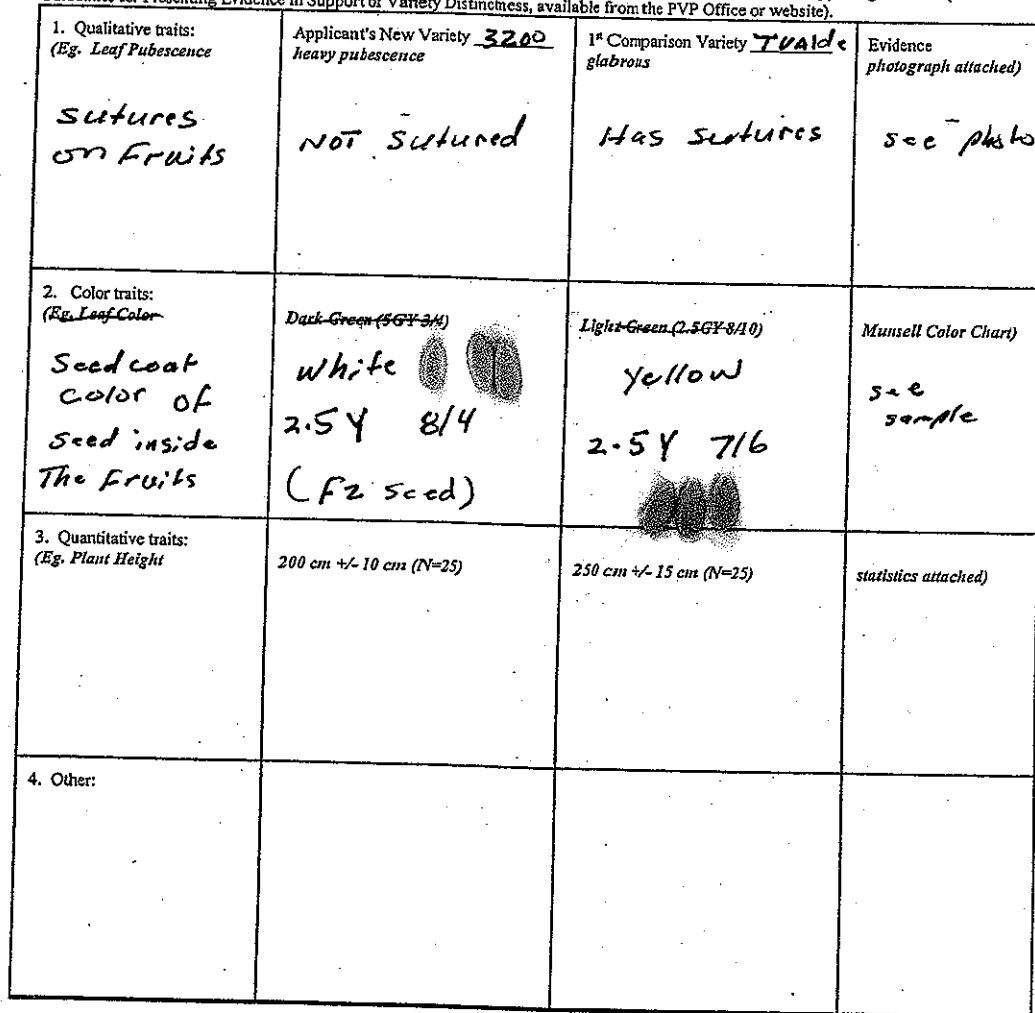 Guidance for Presenting Evidence in Support of Variety Distinctness, available from the PVP Office or website).
1. Qualitative traits:
(Eg. Leaf Pubescence
sutures
on Fruits
Applicant's New Variety 3200
heavy pubescence
NOT Sutured
1st Comparison Variety TVAlde
glabrous
Has sutures
Evidence
photograph attached)
see photo
2. Color traits:
(Eg. Leaf Color
Seed coat
color of
seed inside
The Fruits
Dark Green (5GY 3/4)
white
2.5 Y 8/4
(F2 seed)
Light Green (2.5GY 8/10)
yellow
2.5 Y 7/6
Munsell Color Chart)
see
sample
3. Quantitative traits:
(Eg. Plant Height
200 cm +/- 10 cm (N=25)
250 cm +/- 15 cm (N=25)
statistics attached)
4. Other: